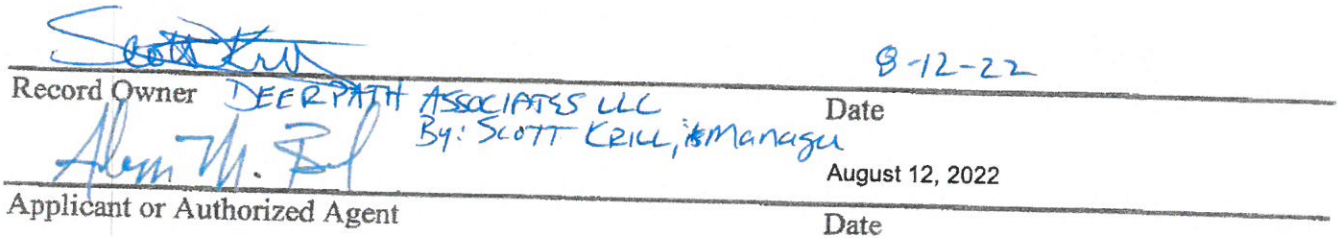 Scott Krill 8-12-22
Record Owner DEERPATH ASSOCIATES LLC Date
By: SCOTT KRILL, its Manager
August 12, 2022
Applicant or Authorized Agent Date